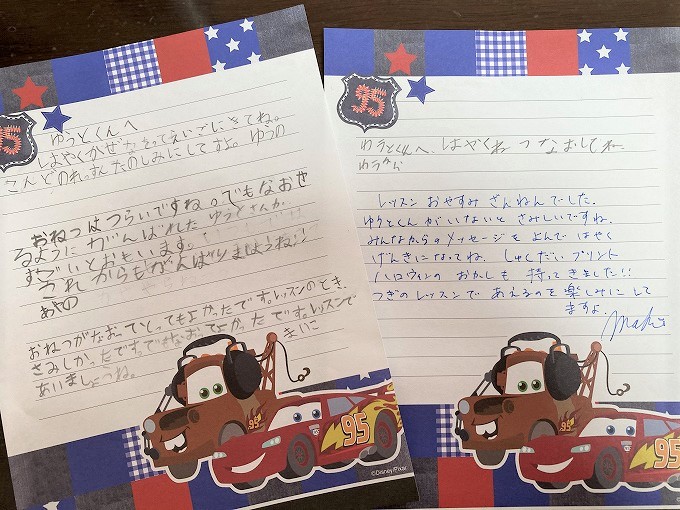 ゆうとくんへ
はやくかぜなおってえいごにきてね。
こんどのれっすんたのしみにしてすよ。ゆうの
おねつはつらいですね。でもなおせ
るようにがんばれた ゆうとくんが
すごいとおもいます。
これからもがんばりましょうね!!
あやの
おねつがなおってとってもよかったです。レッスンのとき、
さみしかったですでもなおてよかったです。レッスンで
あいましょうね。
まいこ
©Disney/Pixar
95
95
ゆうとくんへ はやくねつなおしてね。
ゆうから
レッスン おやすみ ざんねんでした。
ゆうとくんがいないと さみしいですね。
みんなからのメッセージを よんで はやく
げんきになってね。 しゅくだいプリント
ハロウィンの おかしも 持ってきました!!
つぎのレッスンで あえるのを楽しみにして
ますよ。
95
95
95